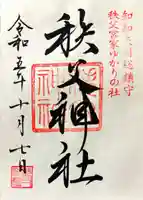 知知夫国総鎮守
秩父宮家ゆかりの社
秩父神社
令和五年十月七日